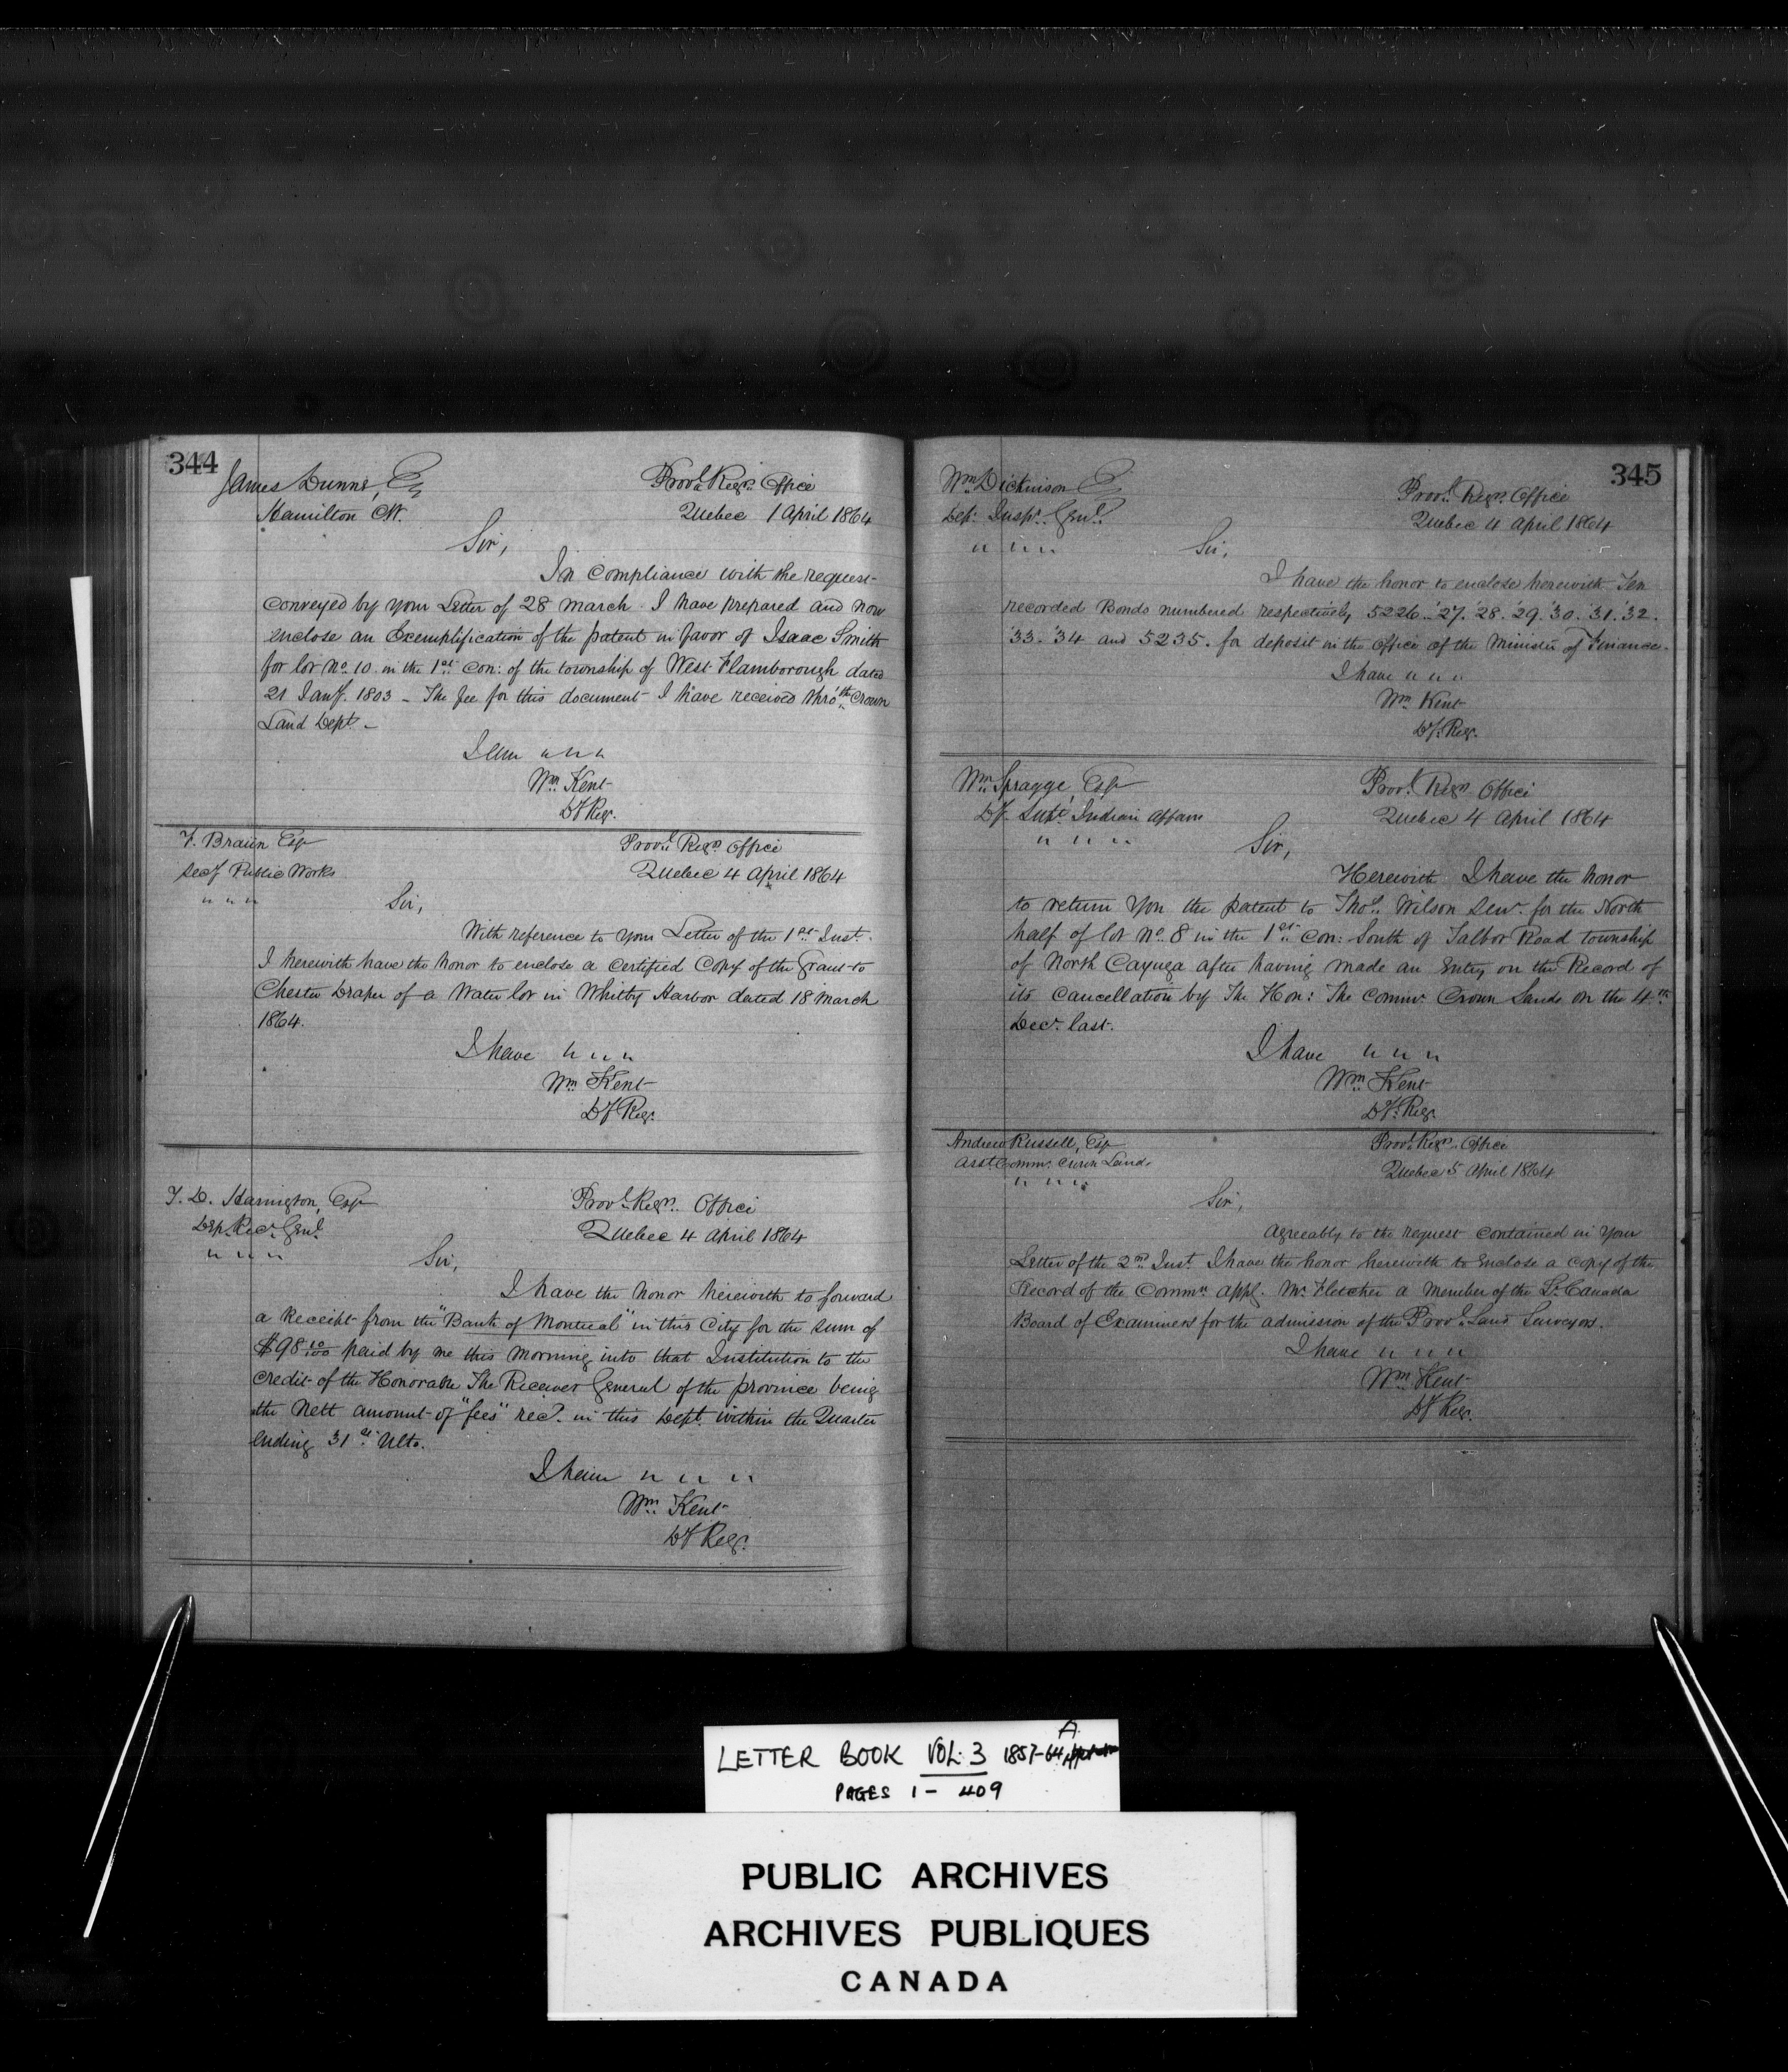 344
James Dunne, Esq
Hamilton CW.
Provl. Regr. Office
Quebec 1 April 1864
Sir,
In compliance with the request
conveyed by your Letter of 28 March I have prepared and now
enclose an Exemplification of the patent in favor of Isaac Smith
for lot No. 10 in the 1st Con: of the township of West Flamborough dated
21 Jany. 1803 - The fee for this document I have received thro' the Crown
Land Dept. -
I am " " "
Wm. Kent
Dy Regr.
F. Braun Esq
Secy Public Works
" " "
Provl. Regr. Office
Quebec 4 April 1864
Sir,
With reference to your Letter of the 1st Inst.
I herewith have the honor to enclose a certified Copy of the Grant to
Chester Draper of a Water lot in Whitby Harbor dated 18 March
1864.
I have " " "
Wm. Kent
Dy Regr.
T. D. Harrington, Esq
Dep. Recr. Genl.
" " "
Provl. Regr. Office
Quebec 4 April 1864
Sir,
I have the honor herewith to forward
a Receipt from the "Bank of Montreal" in this City for the sum of
$98 10/100 paid by me this morning into that Institution to the
credit of the Honorable The Receiver General of the province being
the Nett amount of "fees" recd. in this Dept. within the Quarter
ending 31st Ulto.
I have " " "
Wm. Kent
Dy Regr.
345
Wm. Dickinson Esq
Dep: Inspr. Genl.
" " "
Provl. Regr. Office
Quebec 4 April 1864
Sir,
I have the honor to enclose herewith Ten
recorded Bonds numbered respectively 5226. '27. '28. '29. '30. '31. '32.
'33. '34 and 5235. for deposit in the Office of the Minister of Finance.
I have " " "
Wm. Kent
Dy. Regr.
Wm. Spragge, Esq
Dy. Supt. Indian Affairs
" " "
Provl. Regr. Office
Quebec 4 April 1864
Sir,
Herewith I have the honor
to return you the patent to Thos. Wilson Senr. for the North
half of lot No. 8 in the 1st Con: South of Talbot Road township
of North Cayuga after having made an Entry on the Record of
its cancellation by The Hon: The Commr. Crown Lands on the 4th
Decr. last.
I have " " "
Wm. Kent
Dy. Regr.
Andrew Russell, Esq
Asst Commr. Crown Lands
" " "
Provl. Regr. Office
Quebec 5 April 1864
Sir,
Agreeably to the request contained in your
Letter of the 2nd Inst. I have the honor herewith to enclose a copy of the
Record of the Commn. appg. Mr. Fletcher a Member of the L. Canada
Board of Examiners for the admission of the Provl. Land Surveyors.
I have " " "
Wm. Kent
Dy Regr.
LETTER BOOK VOL. 3 1857-64 A
PAGES 1 - 409
PUBLIC ARCHIVES
ARCHIVES PUBLIQUES
CANADA